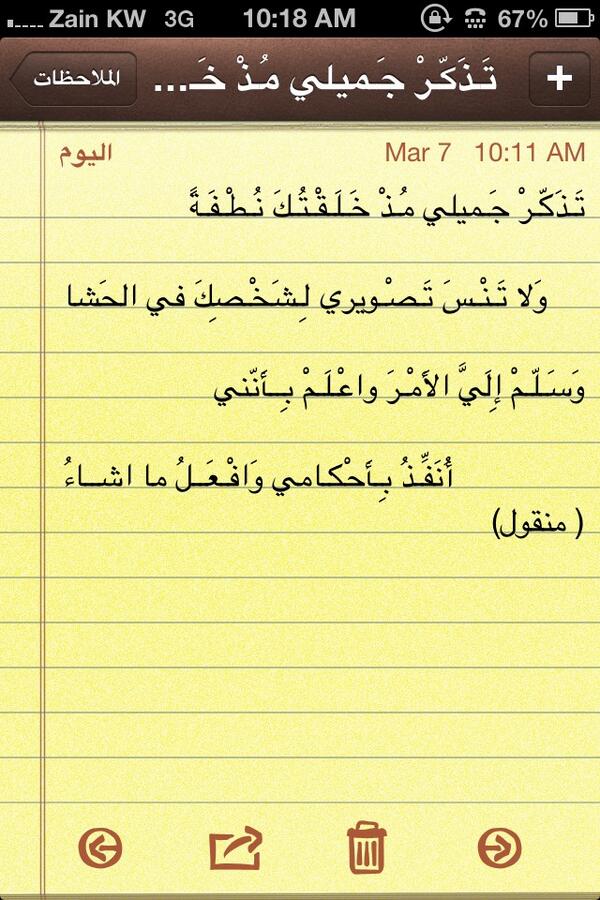 Zain KW 3G 10:18 AM 67%
الملاحظات تَذَكّرْ جَميلي مُذْ خَـ... +
اليوم Mar 7 10:11 AM
تَذَكّرْ جَميلي مُذْ خَلَقْتُكَ نُطْفَةً
وَلا تَنْسَ تَصْويري لِشَخْصِكَ في الحَشا
وَسَلّمْ إِلَيَّ الأمْرَ واعْلَمْ بِأنّني
أُنَفِّذُ بِأحْكامي وَافْعَلُ ما اشاءُ
( منقول)